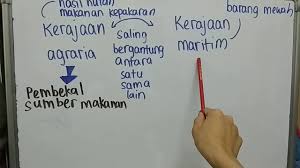 hasil hutan
makanan kepakaran
Kerajaan
agraria
Pembekal
sumber makanan
saling
bergantung
antara
satu
sama
lain
barang mewah
Kerajaan
maritim